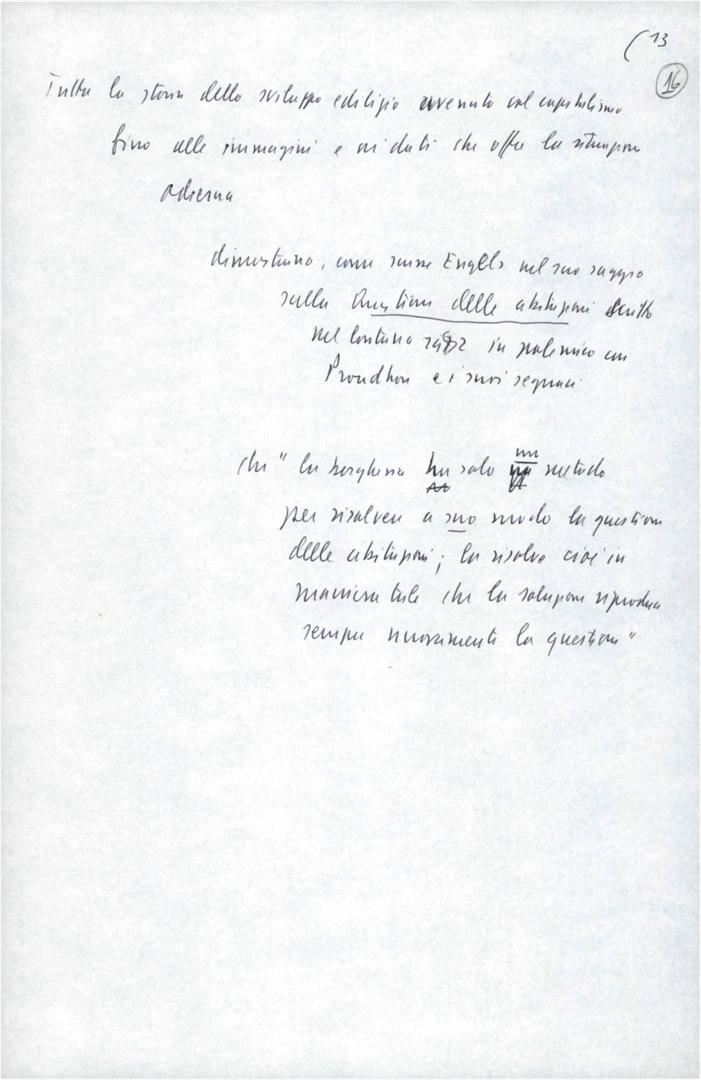 (13
16
Tutta la storia dello sviluppo edilizio avvenuto col capitalismo
fino alle immagini e ai dati che offre la situazione
odierna
dimostrano, come scrisse Engels nel suo saggio
sulla Questione delle abitazioni scritto
nel lontano 1872 in polemica con
Proudhon e i suoi seguaci
che "la borghesia ha solo un metodo
per risolvere a suo modo la questione
delle abitazioni; la risolve cioè in
maniera tale che la soluzione riproduca
sempre nuovamente la questione"